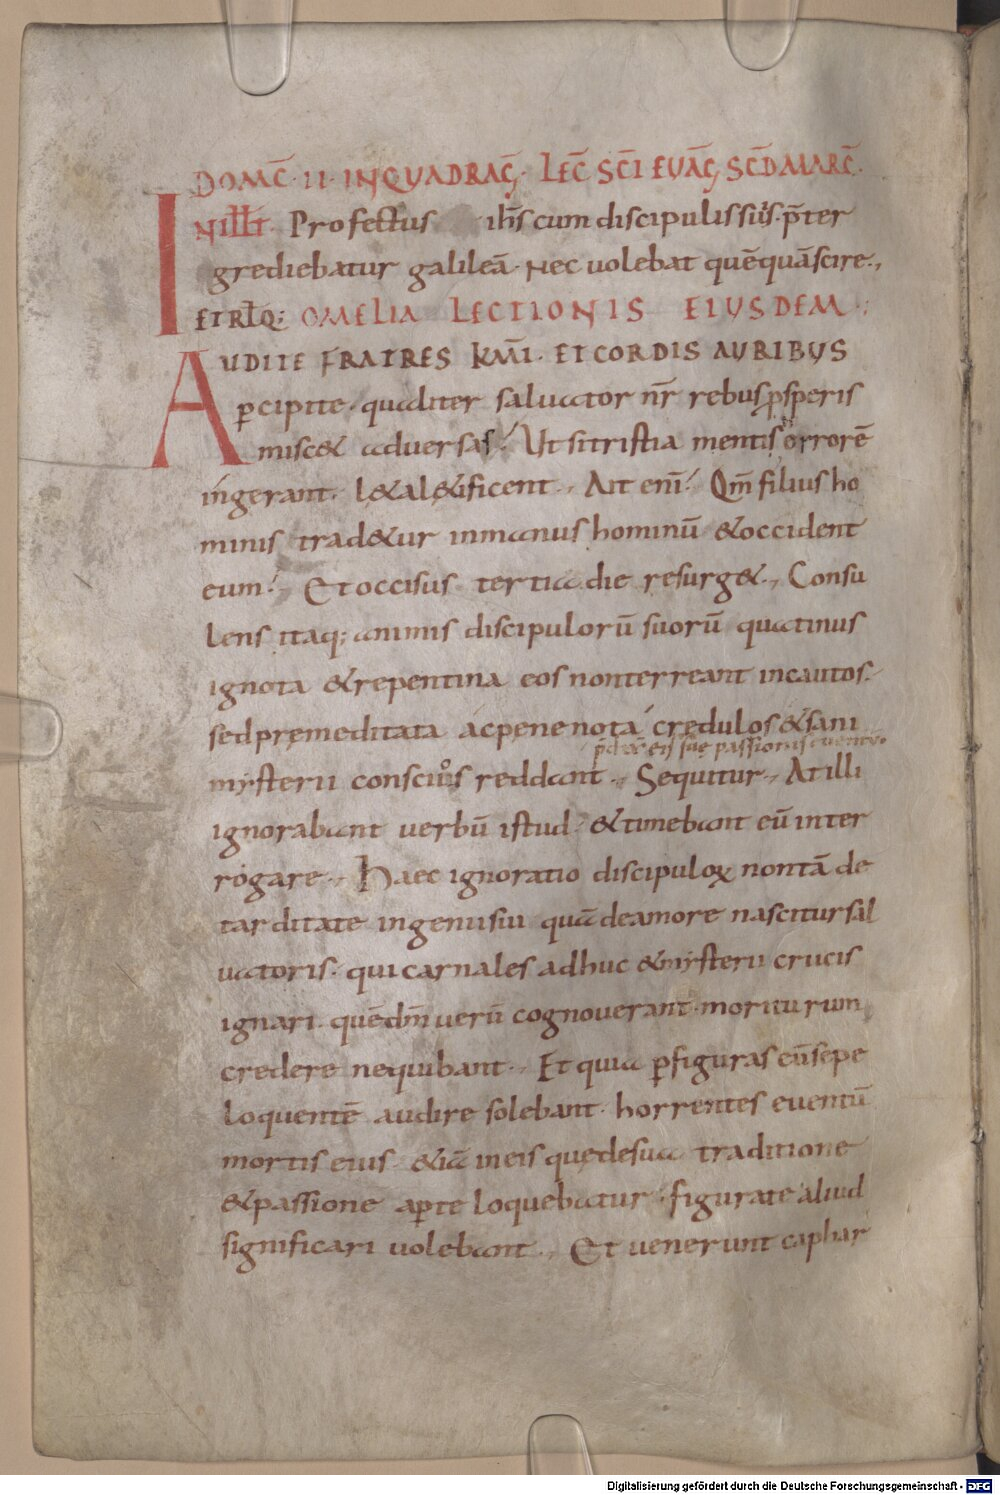 DOMC̄ · II · IN QUADRAḠ · LEC̄ SC̄I EUAḠ SCD̄ MARC̄ ·
IN ILL̄ T̄ · Profectus ih̄s cum discipulis suis · p̄ter
grediebatur galileā · Nec uolebat quēquā scire ·,
ET RL̄Q; OMELIA LECTIONIS EIUSDEM ·,
AUDITE FRATRES KAR̄I · ET CORDIS AURIBUS
ꝑcipite · qualiter saluator nr̄ rebus ꝓsperis
misc& aduersas · Ut si tristia mentis orrorē
ingerant · l&a l&ificent ·, Ait eni̅ · Qm̄ filius ho
minis trad&ur in manus hominū & occident
eum · Et occisus tertia die resurg& ·, Consu
lens itaq; animis discipulorū suorū quatinus
ignota & repentina eos non terreant incautos ·
sed premeditata ac pene nota credulos & sani
p̄dcā eis suę passionis euentū ·
mysterii conscios reddant ·, Sequitur ·, At illi
ignorabant uerbū istud · & timebant eū inter
rogare ·, Haec ignoratio discipuloꝝ non tā de
tarditate ingenii sui quā de amore nascitur sal
uatoris · qui carnales adhuc & mysterii crucis
ignari · quē dm̄ uerū cognouerant · moriturum
credere nequibant ·, Et quia ꝑ figuras eū sepe
loquentē audire solebant · horrentes euentū
mortis eius &iā in eis que de sua traditione
& passione aꝑte loquebatur · figurate aliud
significari uolebant ·, Et uenerunt caphar
Digitalisierung gefördert durch die Deutsche Forschungsgemeinschaft - DFG